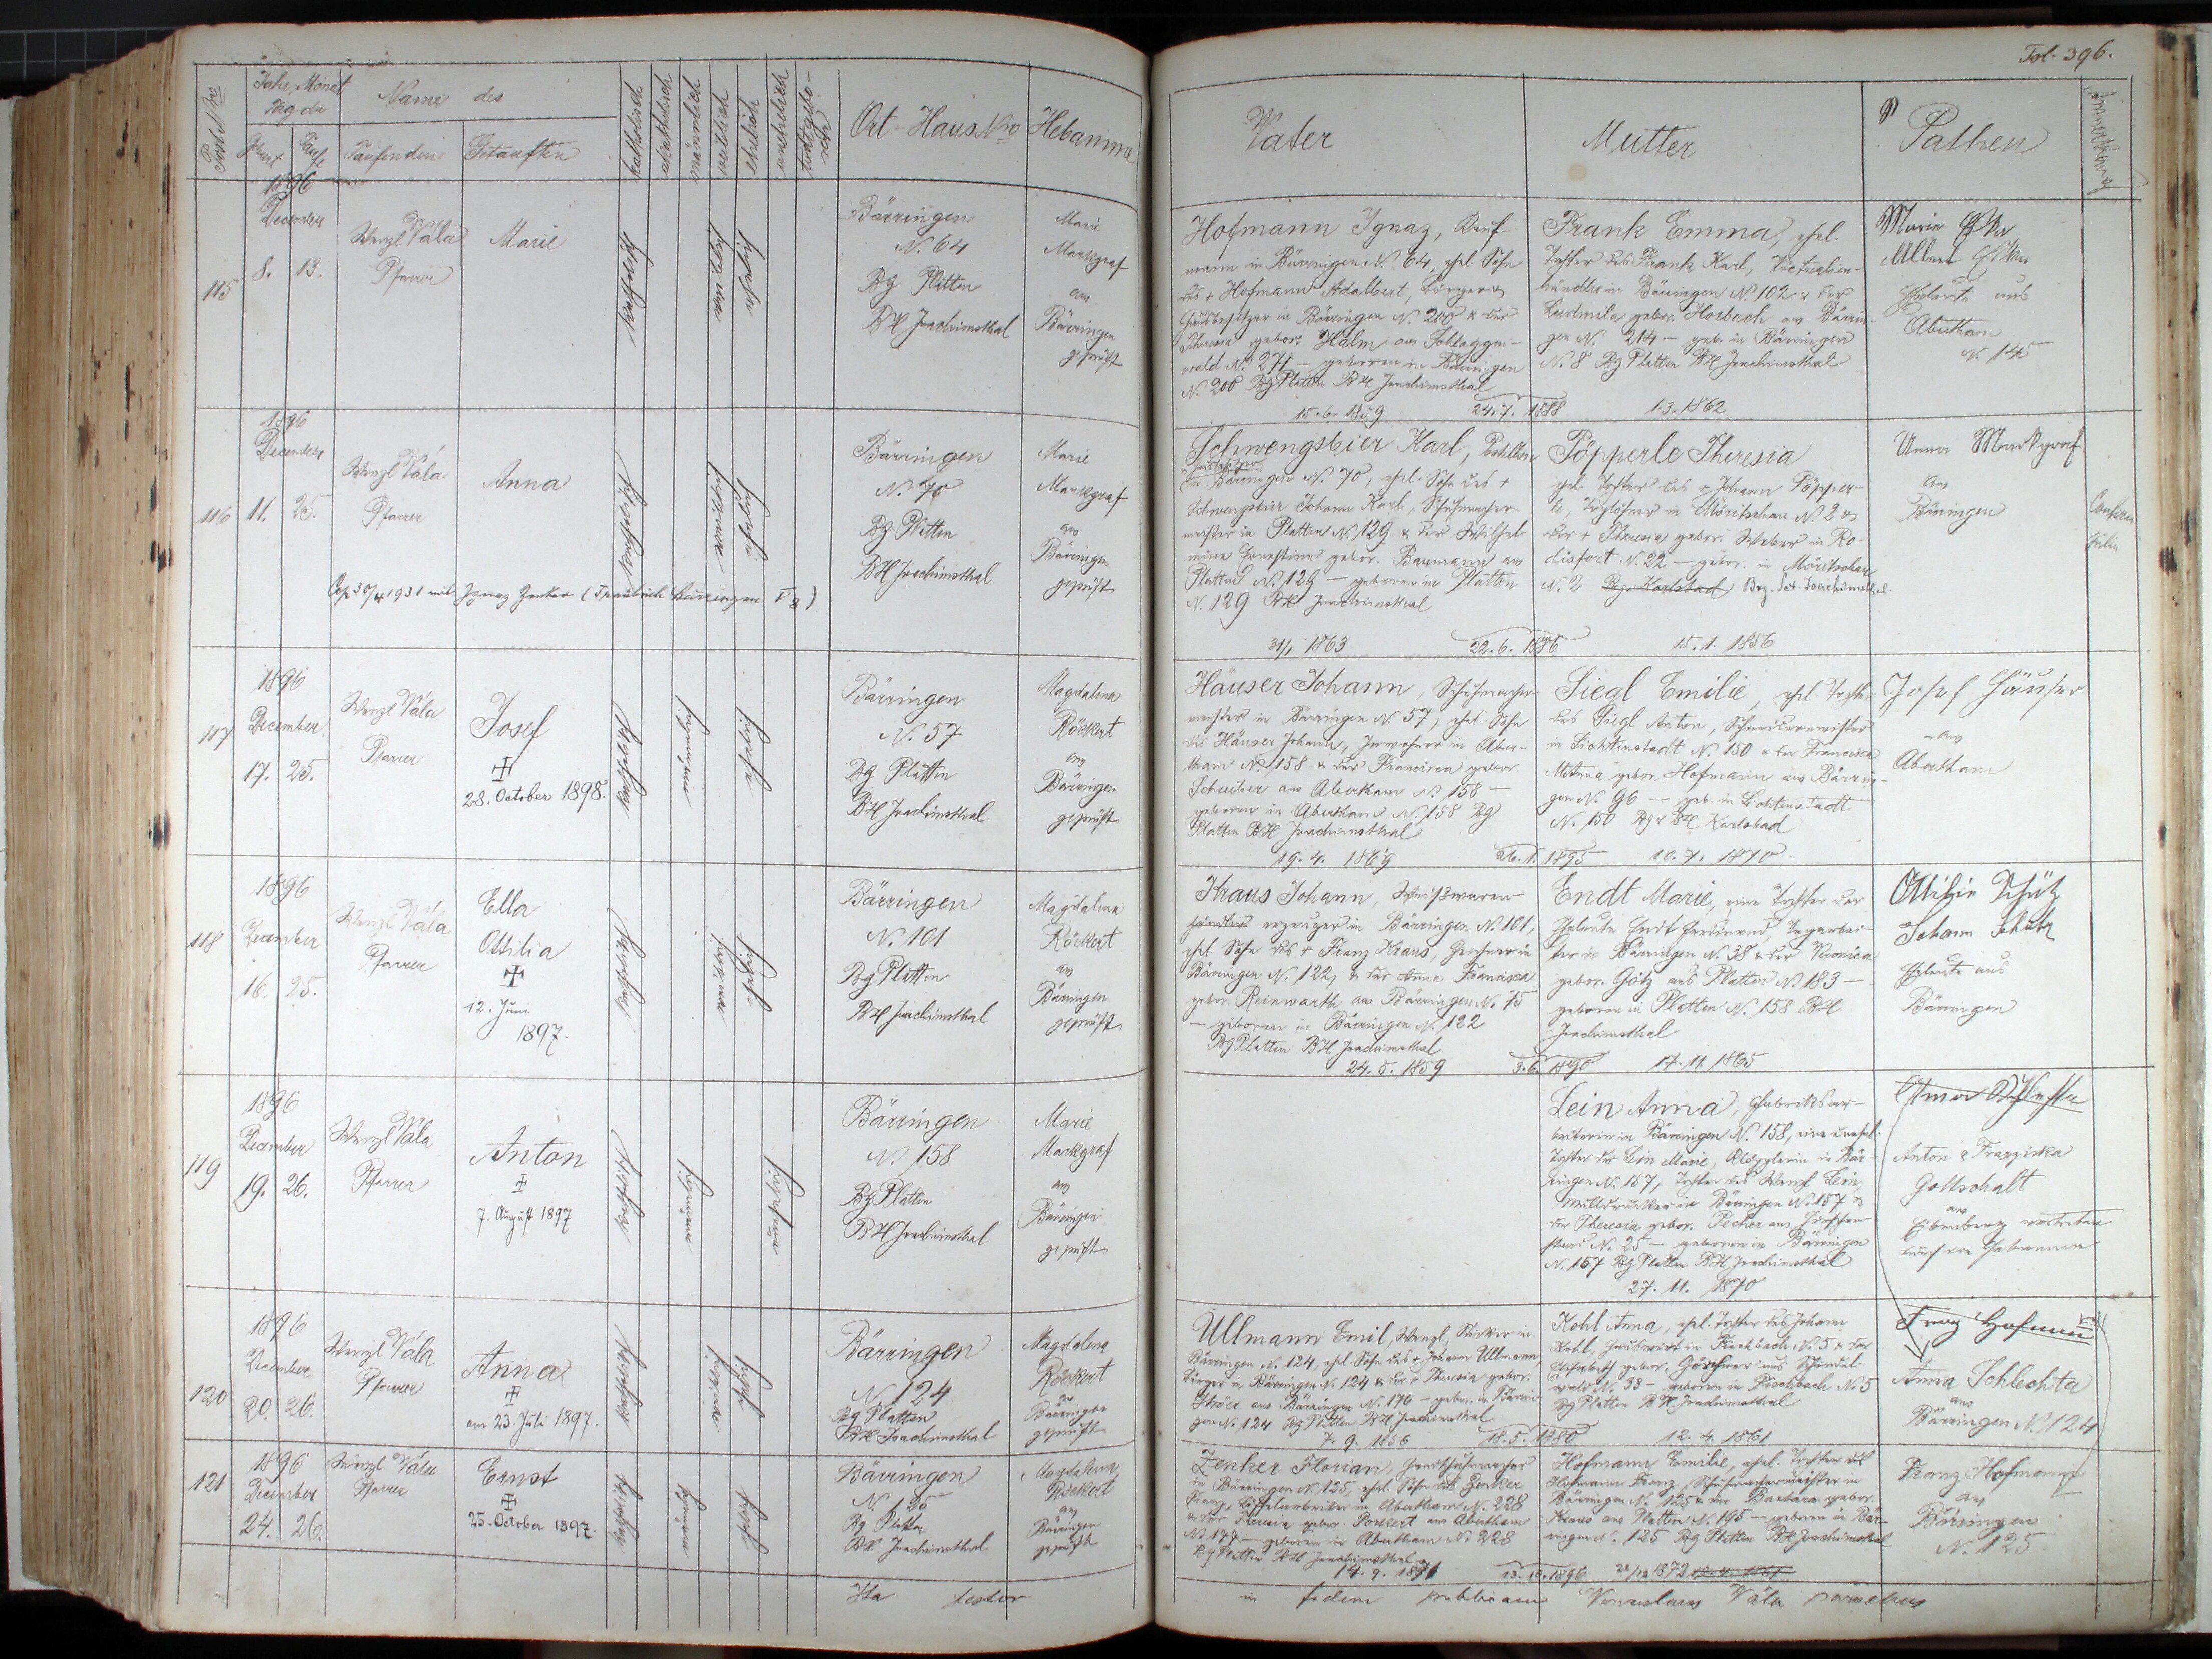 Fol. 396.
Post Nro
Jahr, Monat
Tag der
Geburt
Taufe
Name des
Taufenden
Getauften
katholisch
akatholisch
männlich
weiblich
ehelich
unehelich
Ort-Haus Nro
Hebamme
Vater
Mutter
Pathen
Anmerkung
115
1896
December
8. 13.
Wenzl Vála
Pfarrer
Marie
Bärringen
N. 64
Bg Platten
BH Joachimsthal
Marie
Markgraf
aus
Bärringen
geprüft
Hofmann Ignaz, Kauf-
mann in Bärringen N. 64, ehel. Sohn
des + Hofmann Adalbert, Bürger u
Hausbesitzer in Bärringen N. 200 u der
Theresia gebor. Halm aus Schlaggen-
wald N. 271 - geboren in Bärringen
N. 200 Bg Platten BH Joachimsthal
15. 6. 1859
24. 7. 1888
Frank Emma, ehel.
Tochter des Frank Karl, Victualien-
händler in Bärringen N. 102 u der
Ludmila gebor. Horbach aus Bärrin-
gen N. 214 - geb. in Bärringen
N. 8 Bg Platten BH Joachimsthal
1. 3. 1862
Marie
Eheleute aus
Abertham
N. 145
116
1896
December
11. 25.
Wenzl Vála
Pfarrer
Anna
Cop 30/4 1931 mit Ignaz Zenker (Traubuch Bärringen V 8)
Bärringen
N. 70
Bg Platten
BH Joachimsthal
Marie
Markgraf
aus
Bärringen
geprüft
Schwengsbier Karl, Postillion
u Hausbesitzer
in Bärringen N. 70, ehel. Sohn des +
Schwengsbier Johann Karl, Schuhmacher-
meister in Platten N. 129 u der Wilhel-
mine Ernestine gebor. Baumann aus
Platten N. 129 - geboren in Platten
N. 129 BH Joachimsthal
31/1 1863
22. 6. 1886
Pöpperle Theresia
ehel. Tochter des + Johann Pöpper-
le, Taglöhner in Möritschau N. 2 u
der + Theresia gebor. Weber in Ro-
disfort N. 22 - gebor. in Möritschau
N. 2 Bg. Karlsbad Bez. Skt. Joachimsthal.
15. 1. 1856
Anna Markgraf
aus
Bärringen
117
1896
December
17. 25.
Wenzl Vála
Pfarrer
Josef
28. October 1898.
Bärringen
N. 57
Bg Platten
BH Joachimsthal
Magdalena
Röckert
aus
Bärringen
geprüft
Häuser Johann, Schuhmacher-
meister in Bärringen N. 57, ehel. Sohn
des Häuser Johann, Inwohner in Aber-
tham N. 158 u der Francisca gebor.
Schreiber aus Abertham N. 158 -
geboren in Abertham N. 158 Bg
Platten BH Joachimsthal
19. 4. 1869
26. 1. 1895
Siegl Emilie, ehel. Tochter
des Siegl Anton, Schneidermeister
in Lichtenstadt N. 150 u der Francisca
gebor. Hofmann aus Bärrin-
gen N. 96 - geb. in Lichtenstadt
N. 150 Bg u BH Karlsbad
10. 7. 1870
Josef Häuser
- aus
Abertham
118
1896
December
16. 25.
Wenzl Vála
Pfarrer
Ella
Ottilia
12. Juni
1897.
Bärringen
N. 101
Bg Platten
BH Joachimsthal
Magdalena
Röckert
aus
Bärringen
geprüft
Kraus Johann, Weißwaren-
händler erzeuger in Bärringen N. 101,
ehel. Sohn des + Franz Kraus, Zeichner in
Bärringen N. 122, u der Anna Francisca
gebor. Reinwarth aus Bärringen N. 75
- geboren in Bärringen N. 122
Bg Platten BH Joachimsthal
24. 5. 1859
3. 6. 1890
Endt Marie, eine Tochter der
Eheleute Endt Ferdinand Tagarbei-
ter in Bärringen N. 38 u der Veronica
gebor. Götz aus Platten N. 183 -
geboren in Platten N. 158 BH
Joachimsthal
14. 11. 1865
Ottilie Schütz
Johann Schütz
Eheleute aus
Bärringen
119
1896
December
19. 26.
Wenzl Vála
Pfarrer
Anton
7. August 1897
Bärringen
N. 158
Bg Platten
BH Joachimsthal
Marie
Markgraf
aus
Bärringen
geprüft
Lein Anna, Fabriksar-
beiterin in Bärringen N. 158, eine unehel.
Tochter der Lein Marie, Klöpplerin in Bär-
ringen N. 157, Tochter des Wenzl Lein
in Bärringen N. 157 u
der Theresia gebor. Pecher aus Hirschen-
stand N. 25 - geboren in Bärringen
N. 157 Bg Platten BH Joachimsthal
27. 11. 1870
Anna Schlechta
Anton & Franziska
Gottschalt
aus
Eibenberg vertreten
durch die Hebamme
120
1896
December
20. 26.
Wenzl Vála
Pfarrer
Anna
am 23. Juli 1897.
Bärringen
N. 124
Bg Platten
BH Joachimsthal
Magdalena
Röckert
aus
Bärringen
geprüft
Ullmann Emil, Wenzl, Sticker in
Bärringen N. 124, ehel. Sohn des + Johann Ullmann,
Bürger in Bärringen N. 124 u der + Theresia gebor.
aus Bärringen N. 176 - gebor. in Bärrin-
gen N. 124 Bg Platten BH Joachimsthal
7. 9. 1856
18. 5. 1880
Kohl Anna, ehel. Tochter des Johann
Kohl, Hauswirt in Fischbach, N. 5 u der
Elisabeth gebor. aus Schindel-
wald N. 33 - geboren in Fischbach N. 5
Bg Platten BH Joachimsthal
12. 4. 1861
Franz Hofmann
Anna Schlechta
aus
Bärringen N. 124
121
1896
December
24. 26.
Wenzl Vála
Pfarrer
Ernst
25. October 1897.
Bärringen
N. 125
Bg Platten
BH Joachimsthal
Magdalena
Röckert
aus
Bärringen
geprüft
Zenker Florian, Handschuhmacher
in Bärringen N. 125, ehel. Sohn des Zenker
Franz, Löffelarbeiter in Abertham N. 228
u der Theresia gebor. Porkert aus Abertham
N. 177 - geboren in Abertham N. 228
Bg Platten BH Joachimsthal
14. 9. 1871
13. 10. 1896
Hofmann Emilie, ehel. Tochter des
Hofmann Franz, Schuhmachermeister in
Bärringen N. 125 u der Barbara gebor.
Kraus aus Platten N. 195 - geboren in Bär-
ringen N. 125 Bg Platten BH Joachimsthal
28/12 1872 12. 4. 1861
Franz Hofmann
aus
Bärringen
N. 125
Ita testor in fidem publicam Venceslaus Vála parochus